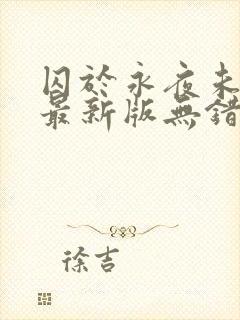 囚於永夜未
最新版無錯
徐吉